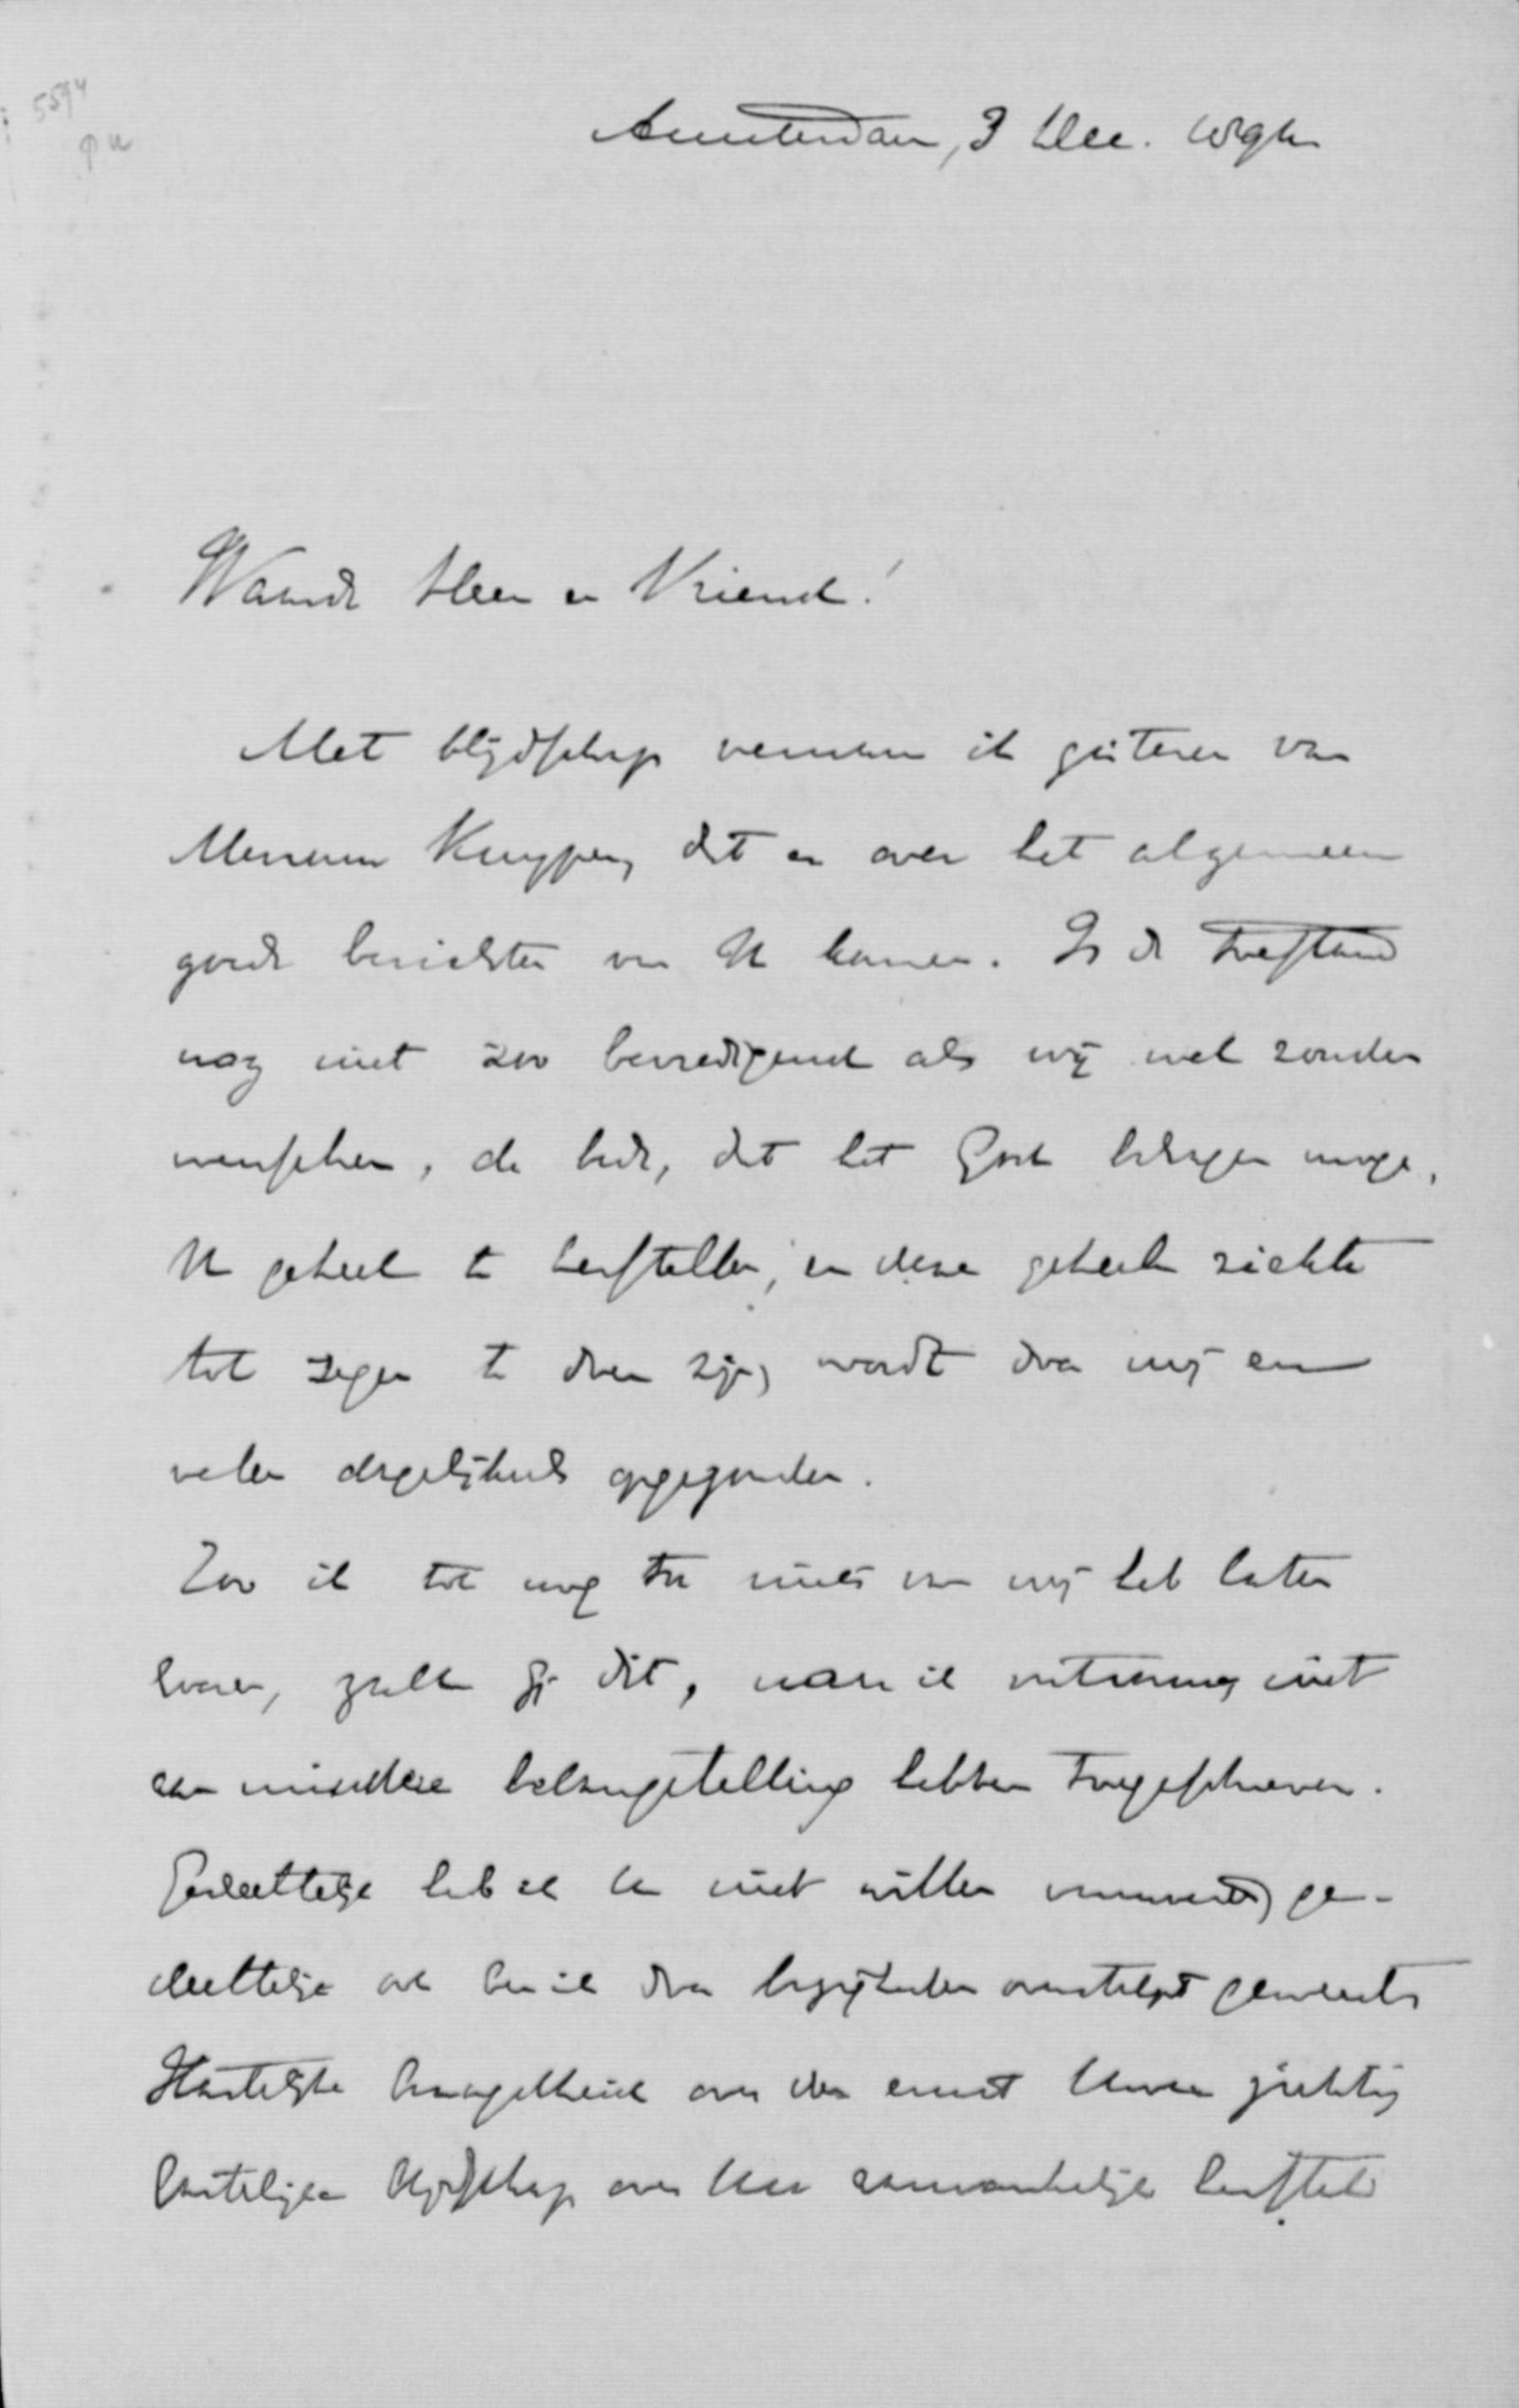 5594
Amsterdam, 3 Dec.
Waarde Heer en Vriend!
Met blijdschap vernam ik gisteren van
Mevrouw Kuyper, dat er over het algemeen
goede berichten van U komen. Is de toestand
nog niet zoo bevredigend als wij wel zouden
wenschen, de bede, dat het God behagen moge,
U geheel te herstellen, en deze geheele ziekte
tot zegen te doen zijn, wordt door mij en
velen dagelijks opgezonden.
Zoo ik tot nog toe niets van mij heb laten
hooren, zult gij dit, naar ik vertrouw, niet
aan mindere belangstelling hebben toegeschreven.
Gedeeltelijk heb ik U niet willen vermoeien, ge-
deeltelijk ook ben ik door bezigheden overstelpt geweest.
Hartelijke bezorgdheid over den ernst Uwer ziekte,
hartelijke blijdschap over Uw aanvankelijk herstel